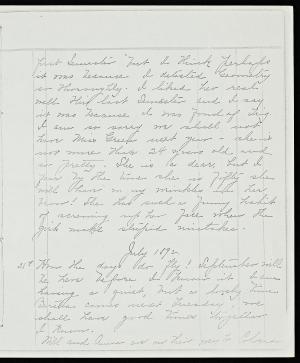 first Semester but I think perhaps
it was because I detested Geometry
so thoroughly. I liked her real
well this last Semester and I say
it was because I was fond of Trig
I am so sorry we shall not
have Miss Green next year - she is
not more than 24 years old and
so pretty. She is a dear, but I
fear by the time she is fifty she
will have on my wrinkles
She has such a funny habit
of screwing up her face when the
girls make stupid mistakes.
July 1892
21st How the days do fly! September will
be here before I know it. I am
having a quiet, but a lovely time
Bertha comes next Tuesday & we
shall have good times together
I know.
Will and are on their way to